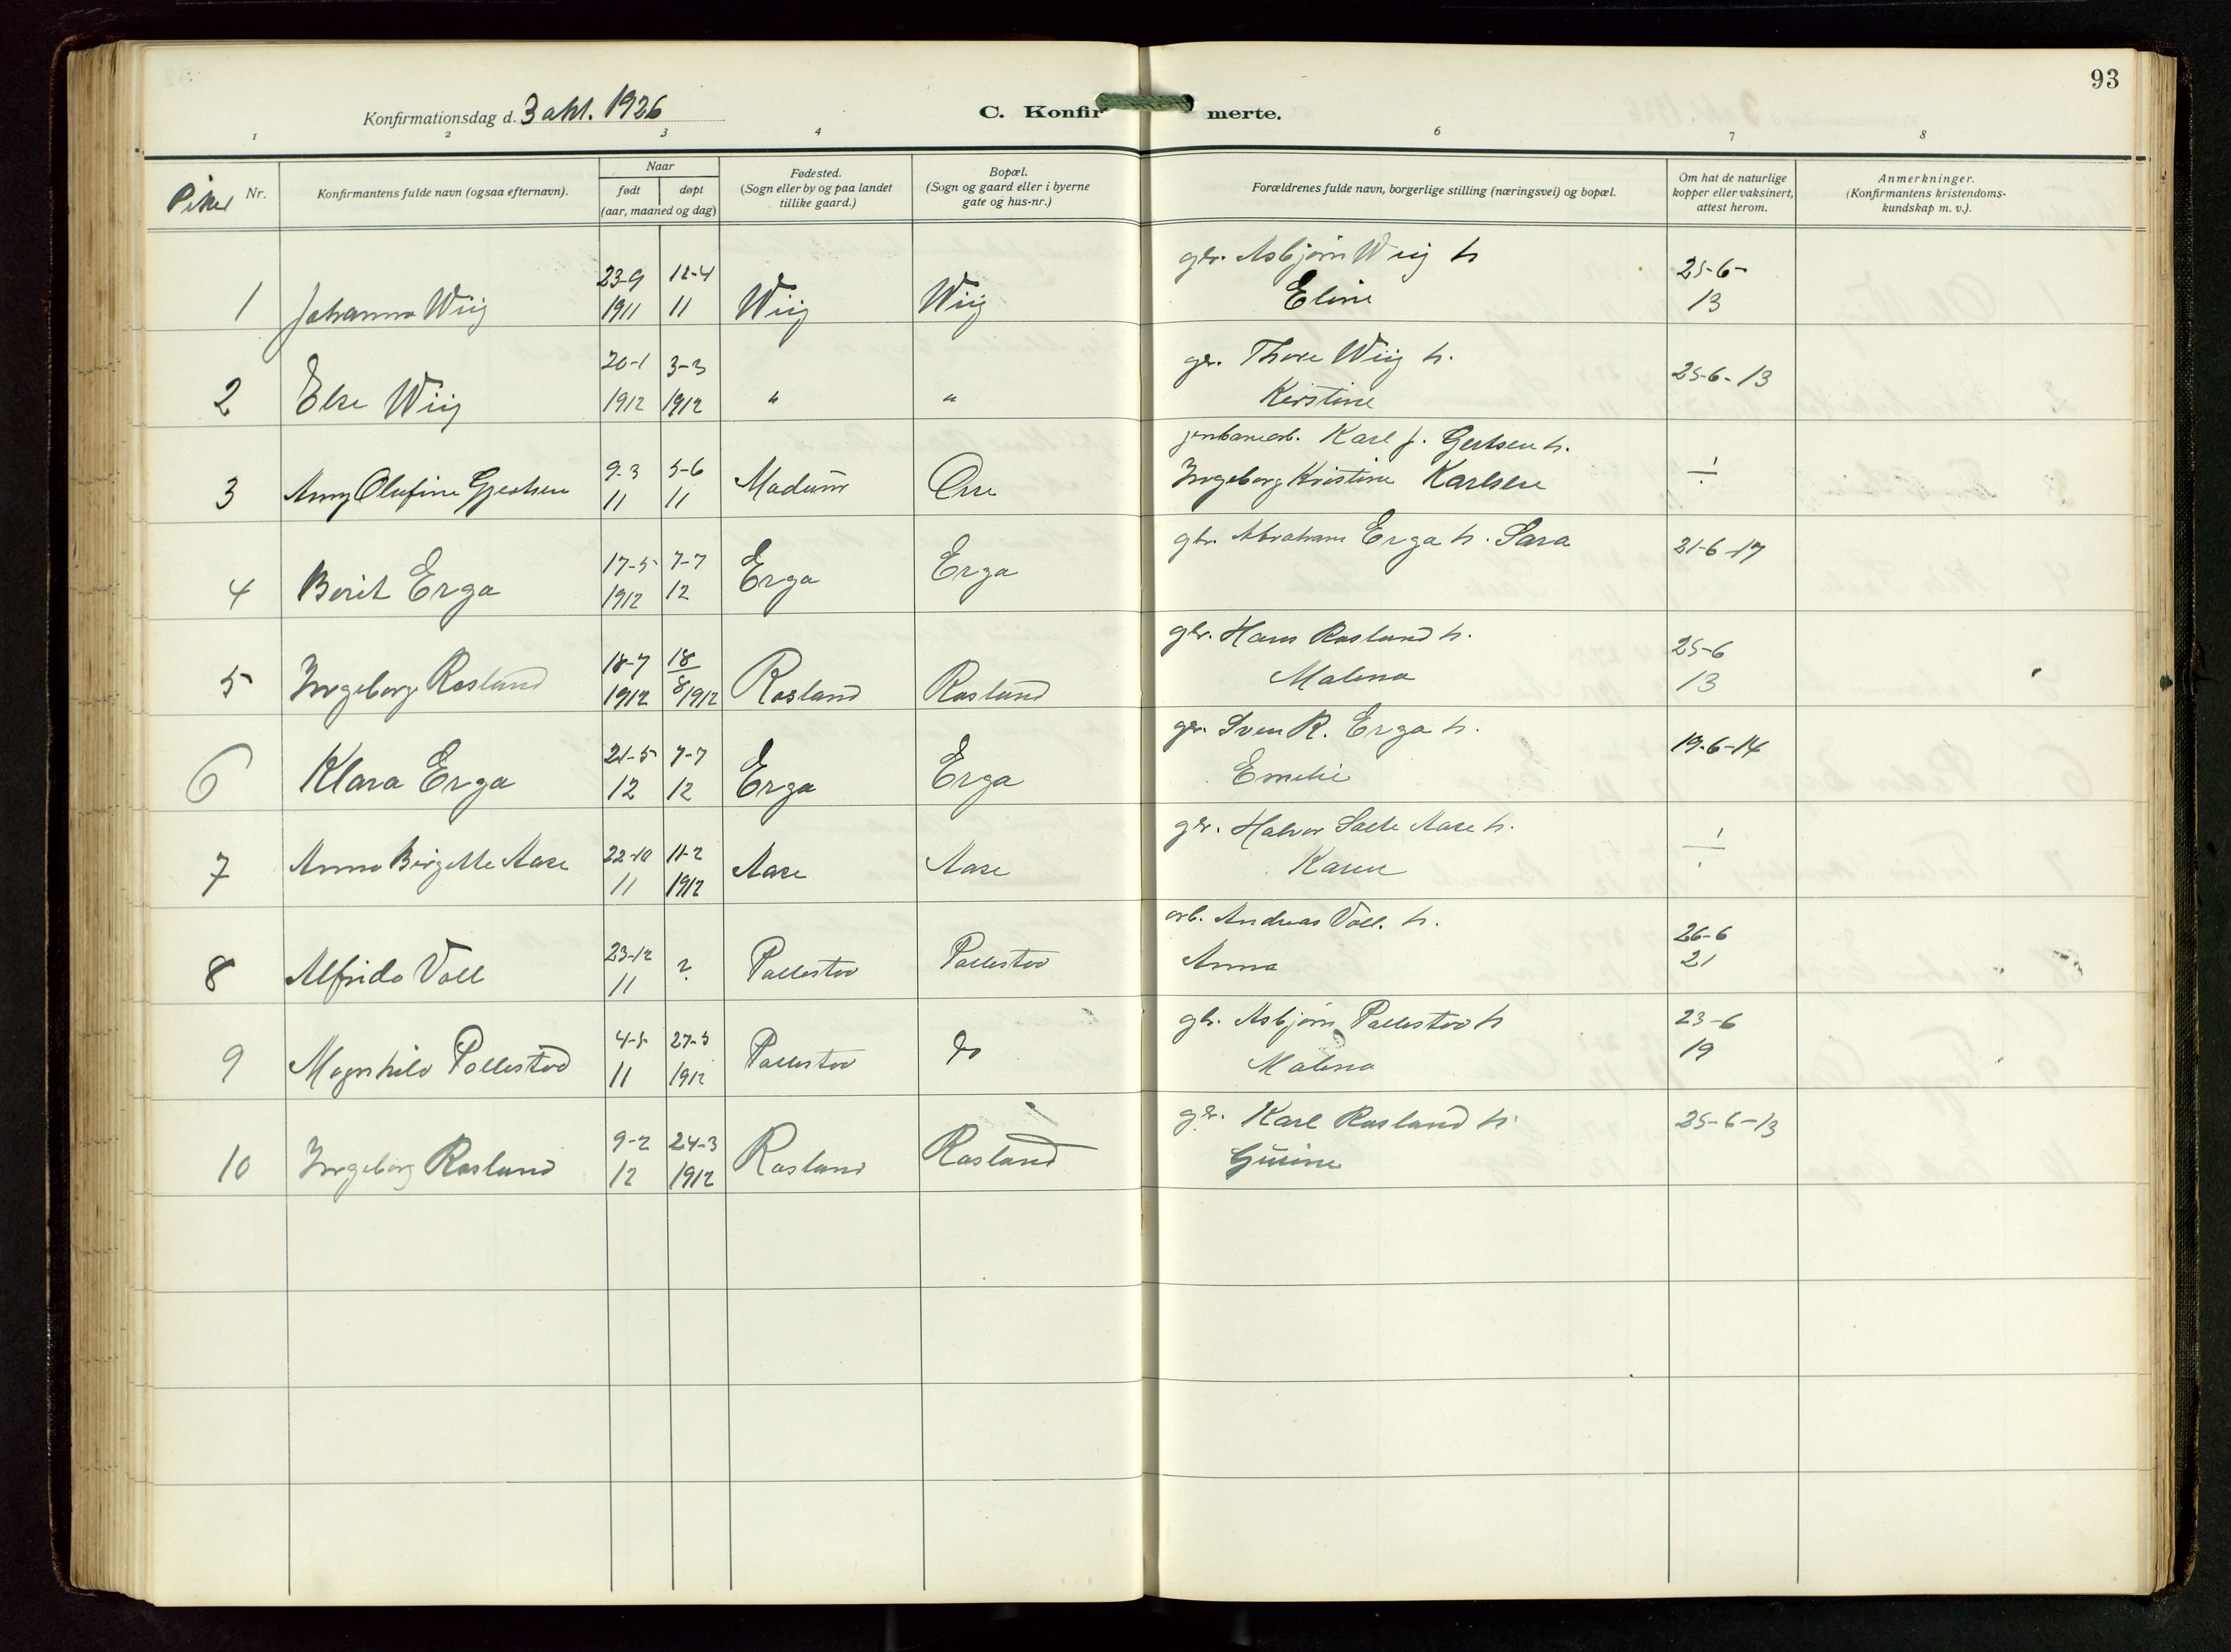 93
Konfirmationsdag d. 3 okt. 1926
C. Konfirmerte.
1 2 3 4 6 7 8
Piker Nr.
Konfirmantens fulde navn (ogsaa efternavn).
Naar
født døpt
(aar, maaned og dag)
Fødested.
(Sogn eller by og paa landet
tillike gaard.)
Bopæl.
(Sogn og gaard eller i byerne
gate og hus-nr.)
Forældrenes fulde navn, borgerlige stilling (næringsvei) og bopæl.
Om hat de naturlige
kopper eller vaksinert,
attest herom.
Anmerkninger.
(Konfirmantens kristendoms-
kundskap m. v.).
gbr. Asbjørn Wiig h
23-9 12-4 25-6-
1 Johanna Wiig 1911 11 Wiig Wiig Eline 13
20-1 3-3 gbr. Thore Wiig h. 25-6-13
2 Else Wiig 1912 1912 " " Kirstine
jernbanearb. Karl J. Gjertsen h.
9-3 5-6 Ingeborg Kristine Karlsen ÷
3 Anny Olufine Gjertsen 11 11 Madum Orre
17-5 7-7 gbr. Abraham Erga h. Sara 21-6-17
4 Berit Erga 1912 12 Erga Erga
18-7 18 gbr. Hans Rosland h. 25-6
5 Ingeborg Rosland 1912 8/1912 Rosland Rosland Malena 13
21-5 7-7 gbr. Sven R. Erga h. 19-6-14
6 Klara Erga 12 12 Erga Erga Emelie
22-10 11-2 gbr. Halvor Salte Aase h. ÷
7 Anna Birgitte Aase 11 1912 Aase Aase Karen
23-12 arb. Andreas Voll. h. 26-6
8 Alfrida Voll 11 ? Pollestad Pollestad Anna 21
4-5 27-5 gbr. Asbjørn Pollestad h 23-6
9 Magnhild Pollestad 11 1912 Pollestad do Malena 19
9-2 24-3 gbr. Karl Rosland h. 25-6-13
10 Ingeborg Rosland 12 1912 Rosland Rosland Gurine